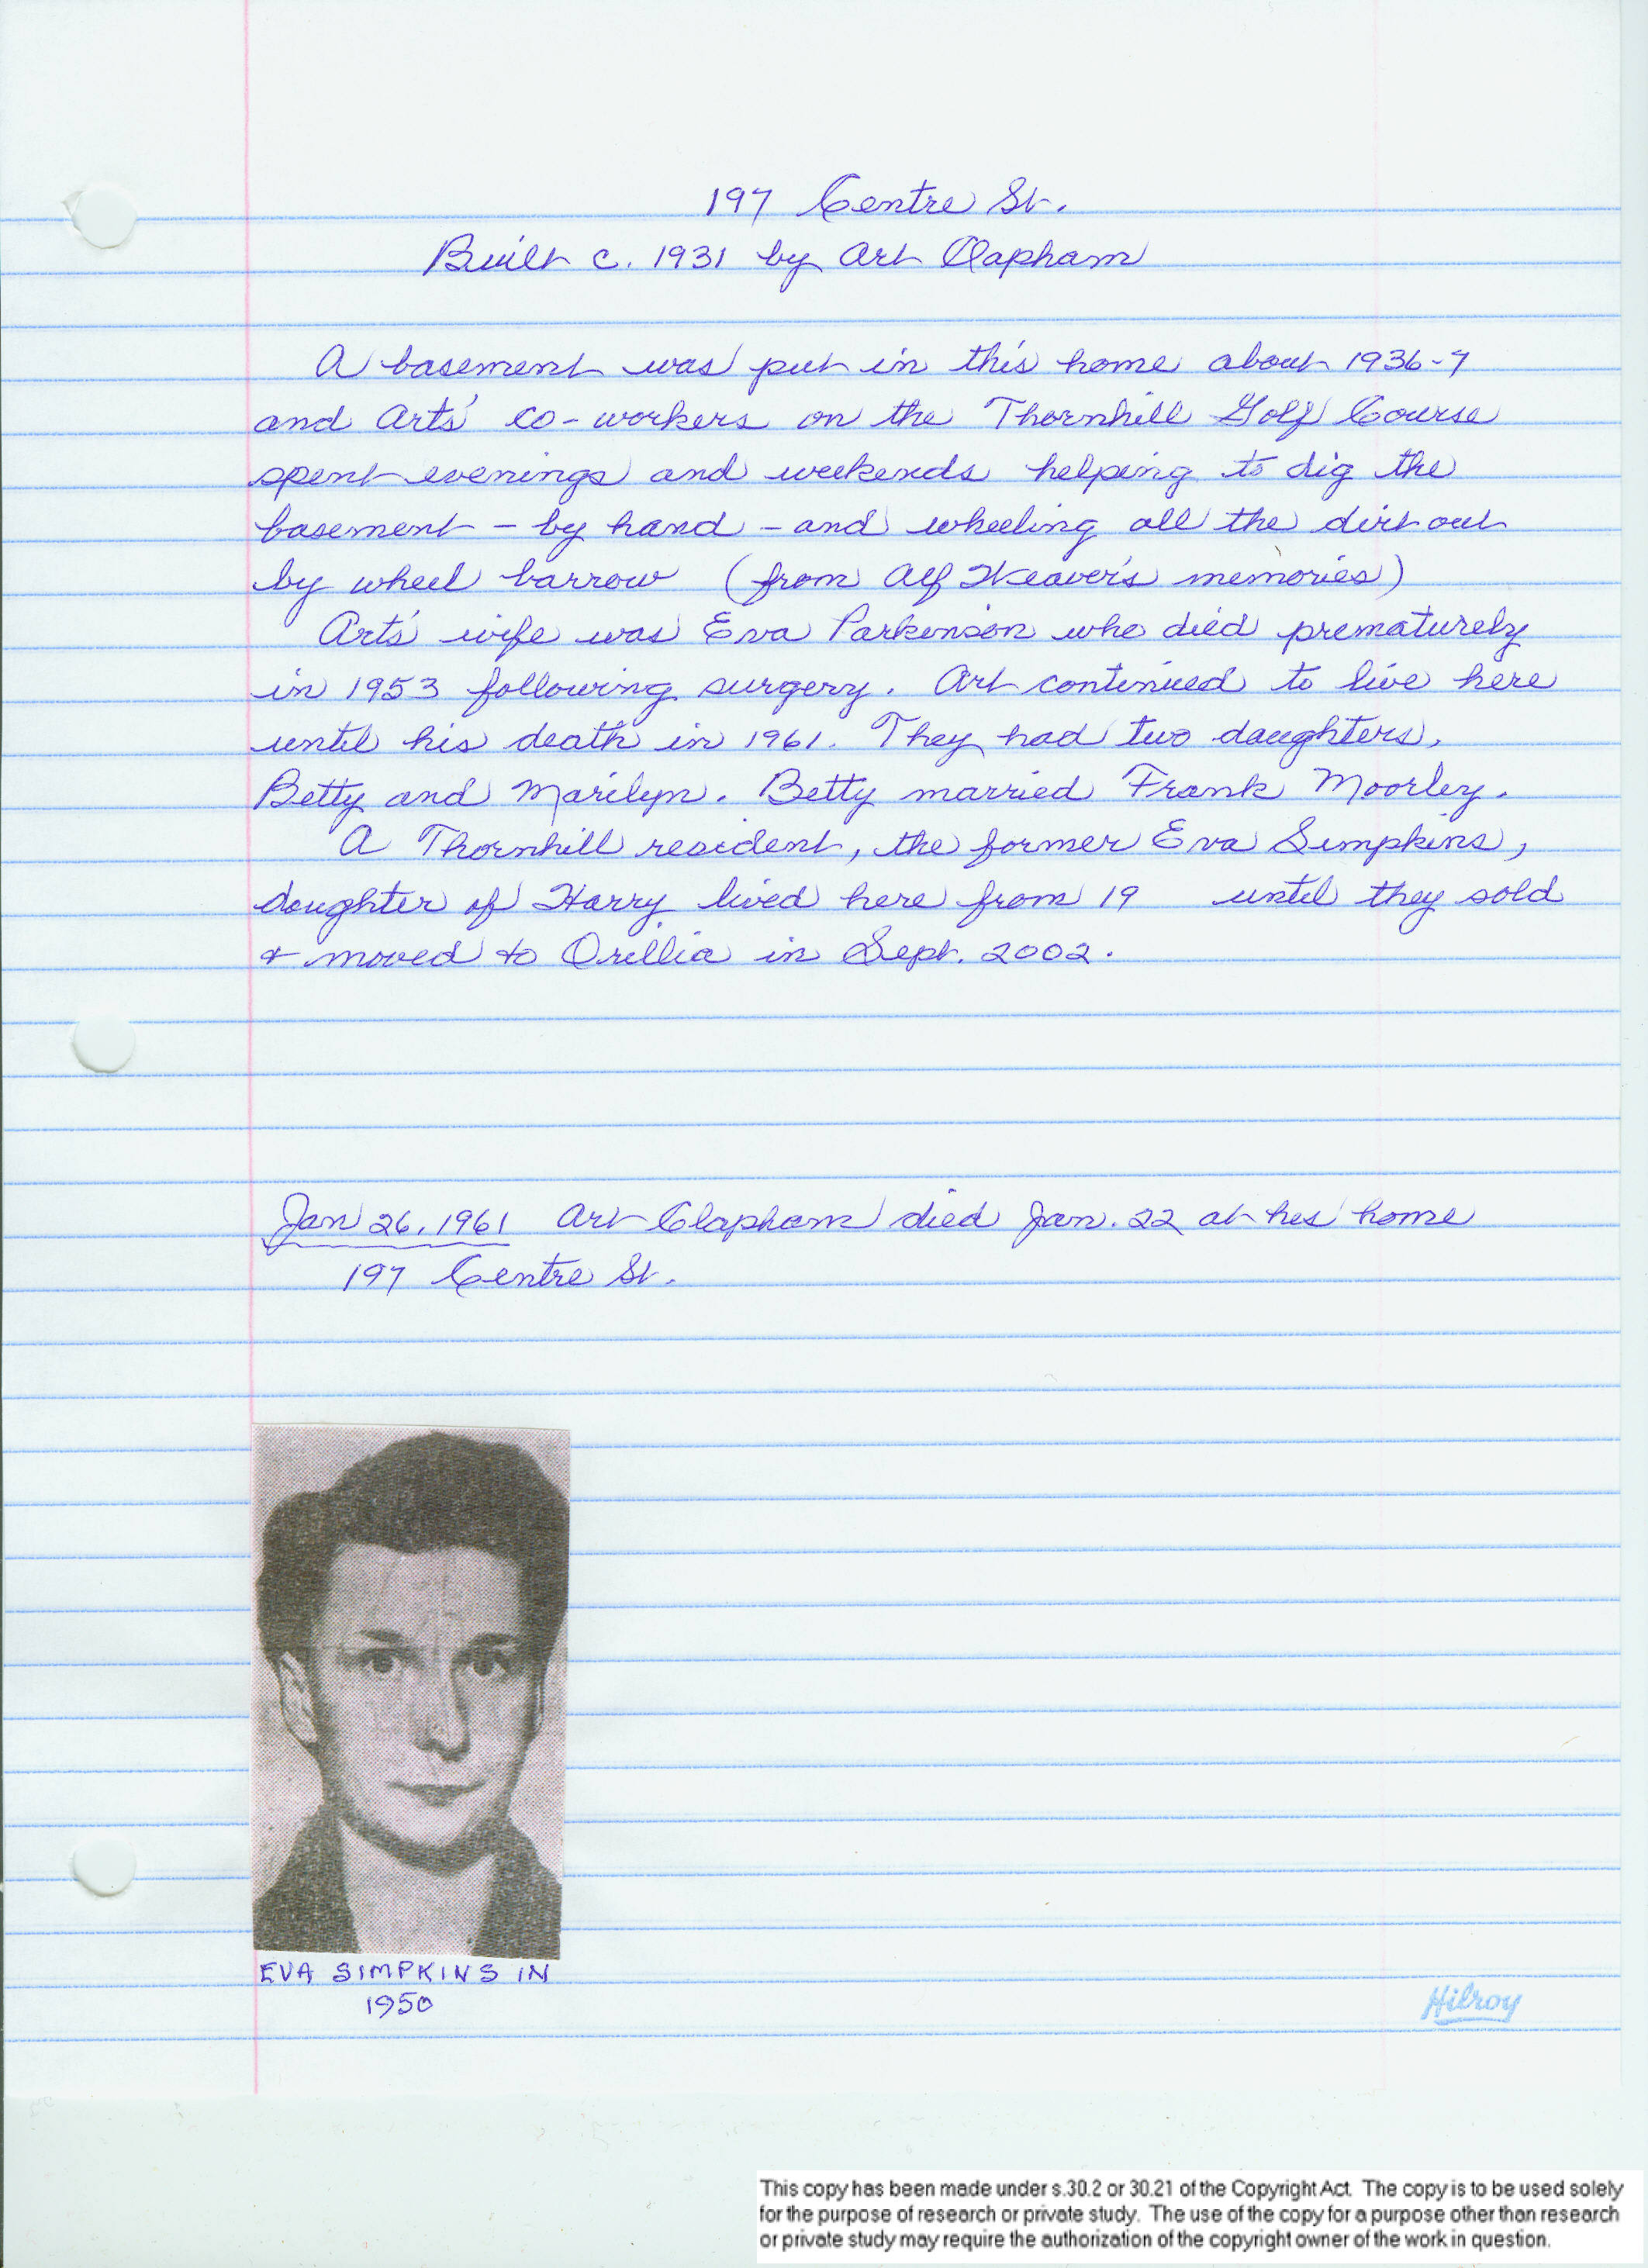 197 Centre St.
Built c. 1931 by Art Clapham
A basement was put in this home about 1936-7
and Arts' co-workers on the Thornhill Golf Course
spent evenings and weekends helping to dig the
basement - by hand - and wheeling all the dirt out
by wheel barrow (from Alf Weaver's memories)
Art's wife was Eva Parkinson who died prematurely
in 1953 following surgery. Art continued to live here
until his death in 1961. They had two daughters,
Betty and Marilyn. Betty married Frank Moorley.
A Thornhill resident, the former Eva Simpkins,
daughter of Harry lived here from 19 until they sold
& moved to Orillia in Sept. 2002.
Jan 26, 1961 Art Clapham died Jan. 22 at his home
197 Centre St.
EVA SIMPKINS IN
1950
Hilroy
This copy has been made under s.30.2 or 30.21 of the Copyright Act. The copy is to be used solely
for the purpose of research or private study. The use of the copy for a purpose other than research
or private study may require the authorization of the copyright owner of the work in question.